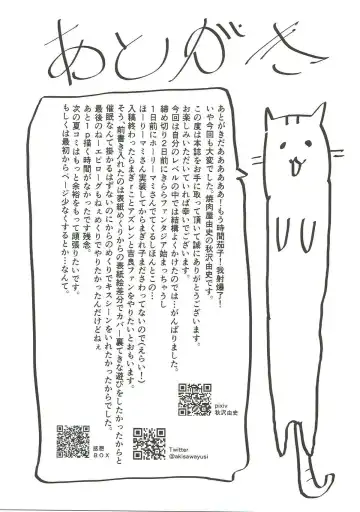 あとがき
あとがきだああああああ！もう時間茄子！我射爆了！
いや今回も大変でした。焼肉屋由史の秋沢由史です。
この度は本誌をお手に取って頂いて誠にありがとうございます。
お楽しみいただいていれば幸いでございます。
今回は自分のレベルの中では結構よくかけたのでは…がんばりました。
締め切り2日前にきららファンタジア始まっちゃうし
1日前にホーリーマミさんでてくるしほんとこの…
ほーりーマミさん実装してからまぎれ子まださわってないので(えらい！)
入稿終わったらまぎrことアズレンと吉良ファンをやりたいとおもいます。
そう、前書き入れたのは表紙めくりからの表紙絵差分でカバー裏てきな遊びをしたかったからと
催眠なんて掛かるはずないのにからのめくりでキスシーンをいれたかったからでした。
最後のねーエピローグもねぇめくりでやりたかったんだけどねぇ
あと1p描く時間がなかったです残念。
次の夏コミはもっと余裕をもって頑張りたいです。
もしくは最初からページ少なくするとか…なんて。
pixiv
秋沢由史
Twitter
@akisawayusi
感想
BOX